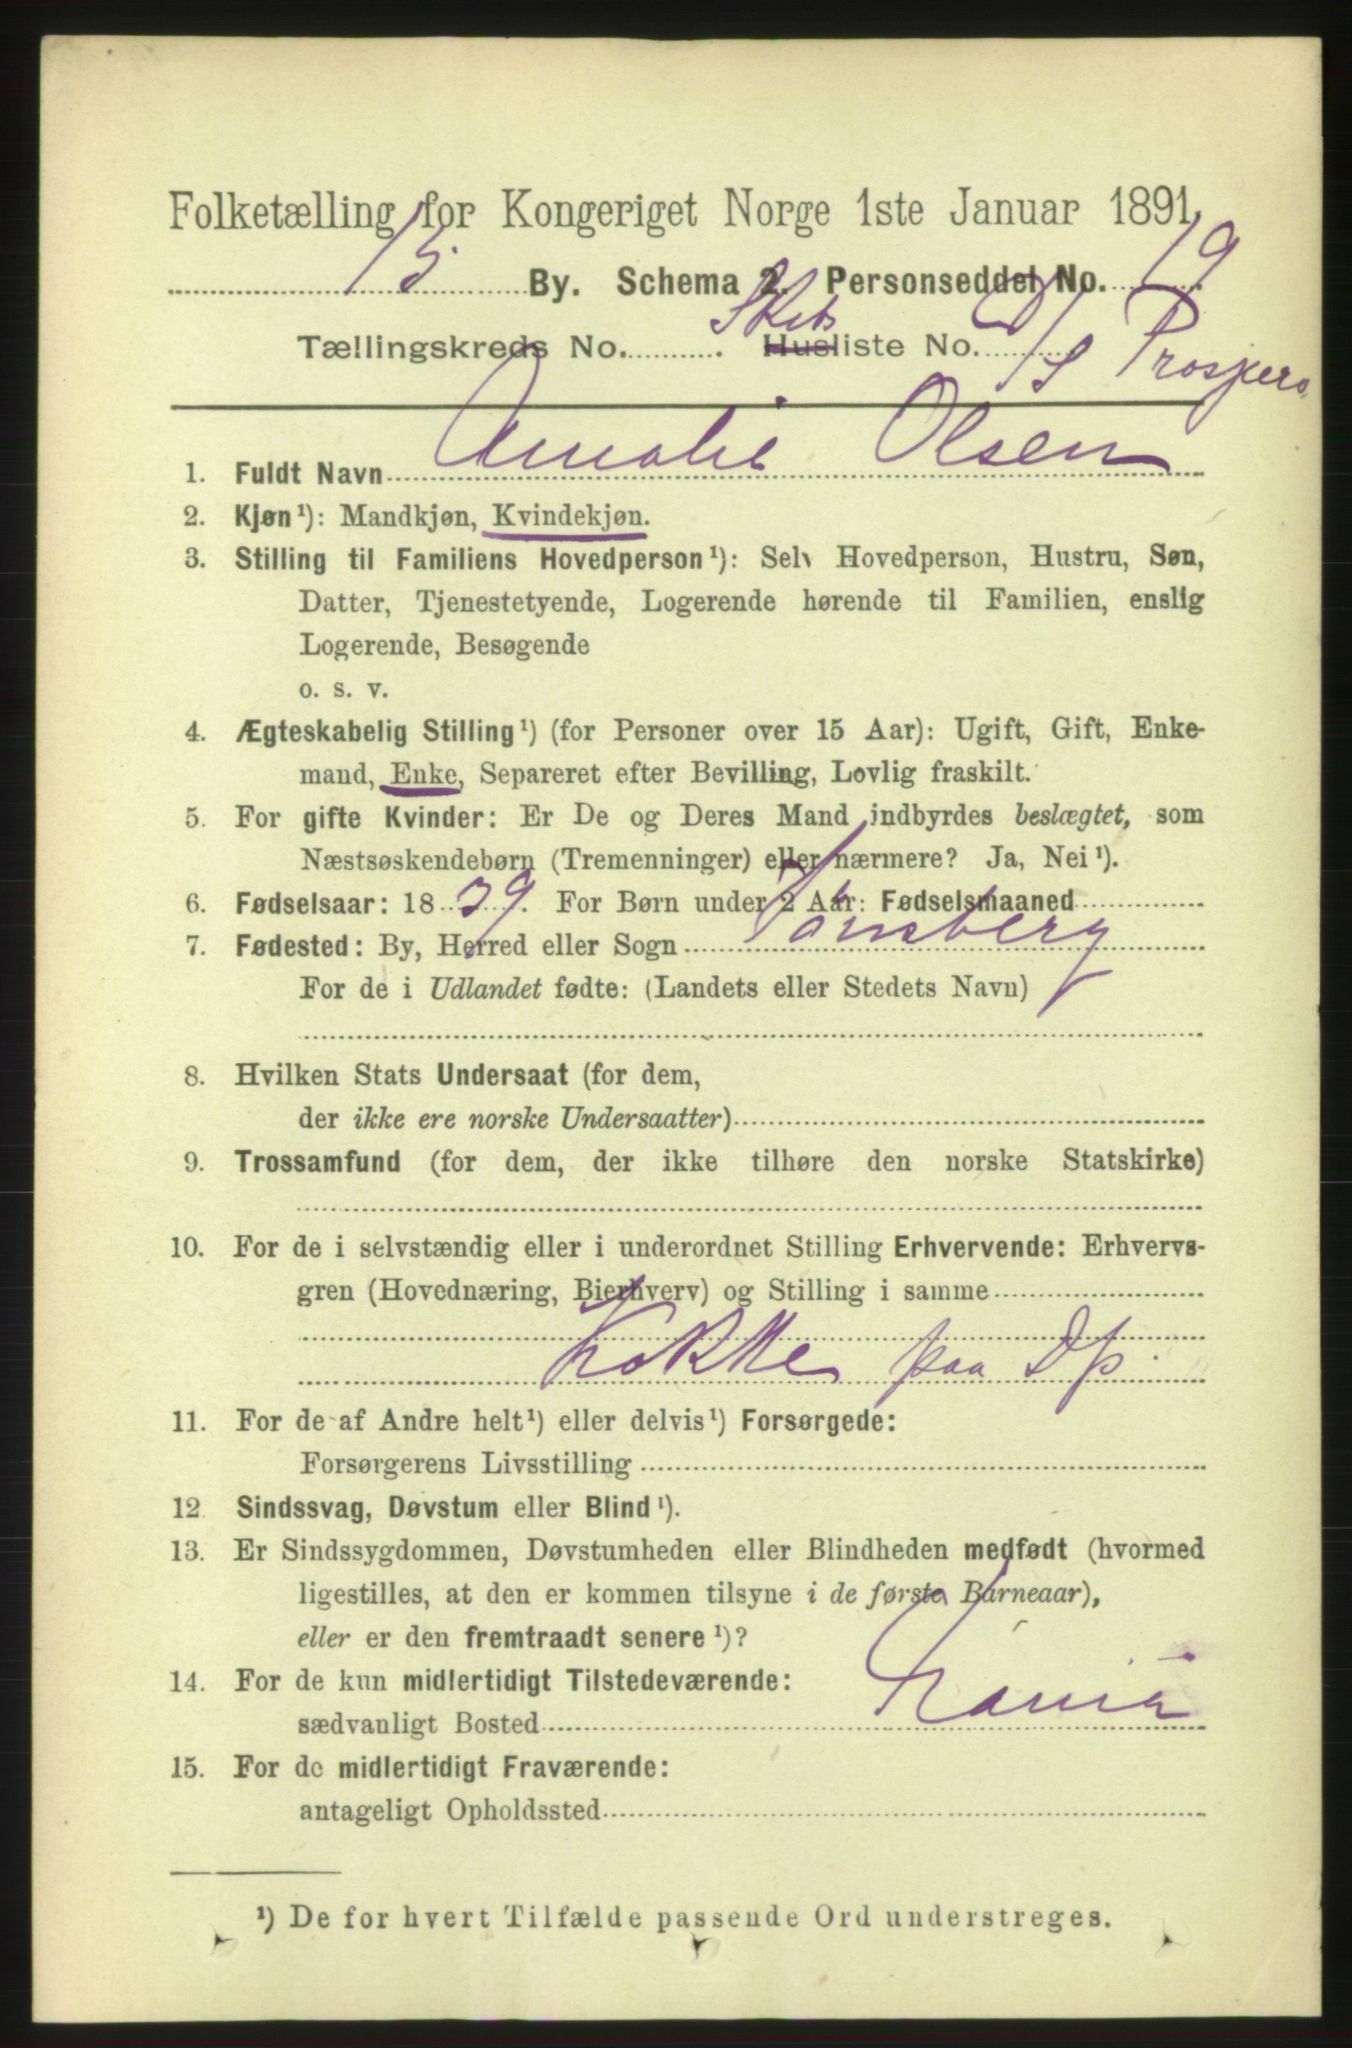 Folketælling for Kongeriget Norge 1ste Januar 1891.
15 By. Schema 2. Personseddel No. 19
Tællingskreds No. . Skibs Husliste No. D/S Prospero
1. Fuldt Navn Amalie Olsen
2. Kjøn¹): Mandkjøn, Kvindekjøn.
3. Stilling til Familiens Hovedperson¹): Selv Hovedperson, Hustru, Søn,
Datter, Tjenestetyende, Logerende hørende til Familien, enslig
Logerende, Besøgende
o. s. v.
4. Ægteskabelig Stilling¹) (for Personer over 15 Aar): Ugift, Gift, Enke-
mand, Enke, Separeret efter Bevilling, Lovlig fraskilt.
5. For gifte Kvinder: Er De og Deres Mand indbyrdes beslægtet, som
Næstsøskendebørn (Tremenninger) eller nærmere? Ja, Nei¹).
6. Fødselsaar: 1839. For Børn under 2 Aar: Fødselsmaaned
7. Fødested: By, Herred eller Sogn Tönsberg
For de i Udlandet fødte: (Landets eller Stedets Navn)
8. Hvilken Stats Undersaat (for dem,
der ikke ere norske Undersaatter)
9. Trossamfund (for dem, der ikke tilhøre den norske Statskirke)
10. For de i selvstændig eller i underordnet Stilling Erhvervende: Erhvervs-
gren (Hovednæring, Bierhverv) og Stilling i samme
Kokke paa Dp.
11. For de af Andre helt¹) eller delvis¹) Forsørgede:
Forsørgerens Livsstilling
12. Sindssvag, Døvstum eller Blind¹).
13. Er Sindssygdommen, Døvstumheden eller Blindheden medfødt (hvormed
ligestilles, at den er kommen tilsyne i de første Barneaar),
eller er den fremtraadt senere¹)?
14. For de kun midlertidigt Tilstedeværende:
sædvanligt Bosted
15. For de midlertidigt Fraværende:
antageligt Opholdssted
¹) De for hvert Tilfælde passende Ord understreges.